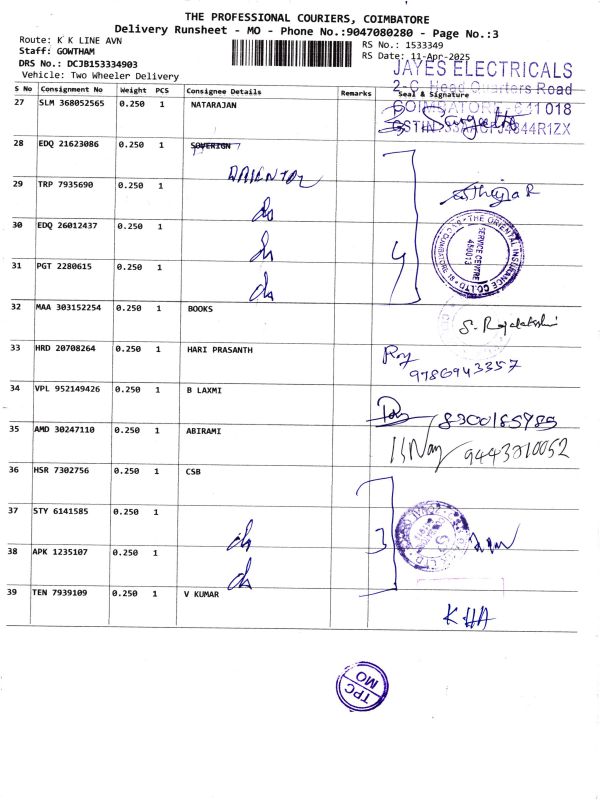 THE PROFESSIONAL COURIERS, COIMBATORE
Delivery Runsheet - MO - Phone No.:9047080280 - Page No.:3
Route: K K LINE AVN
RS No.: 1533349
Staff: GOWTHAM
RS Date: 11-Apr-2025
DRS No.: DCJB153334903
Vehicle: Two Wheeler Delivery
JAYES ELECTRICALS
2-C, Head Quarters Road
COIMBATORE - 641 018
S No Consignment No Weight PCS Consignee Details Remarks Seal & Signature
27 SLM 368052565 0.250 1 NATARAJAN
28 EDQ 21623086 0.250 1 SOVERIGN
ORIENTAL
29 TRP 7935690 0.250 1 do
30 EDQ 26012437 0.250 1 do
4
THE ORIENTAL INSURANCE CO. LTD.
SERVICE CENTRE
31 PGT 2280615 0.250 1 do
32 MAA 303152254 0.250 1 BOOKS
S. Rajalakshmi
33 HRD 20708264 0.250 1 HARI PRASANTH
Roy
9786943357
34 VPL 952149426 0.250 1 B LAXMI
8300185985
35 AMD 30247110 0.250 1 ABIRAMI
9443210052
36 HSR 7302756 0.250 1 CSB
37 STY 6141585 0.250 1 do
3
38 APK 1235107 0.250 1 do
39 TEN 7939109 0.250 1 V KUMAR
TPC
MO